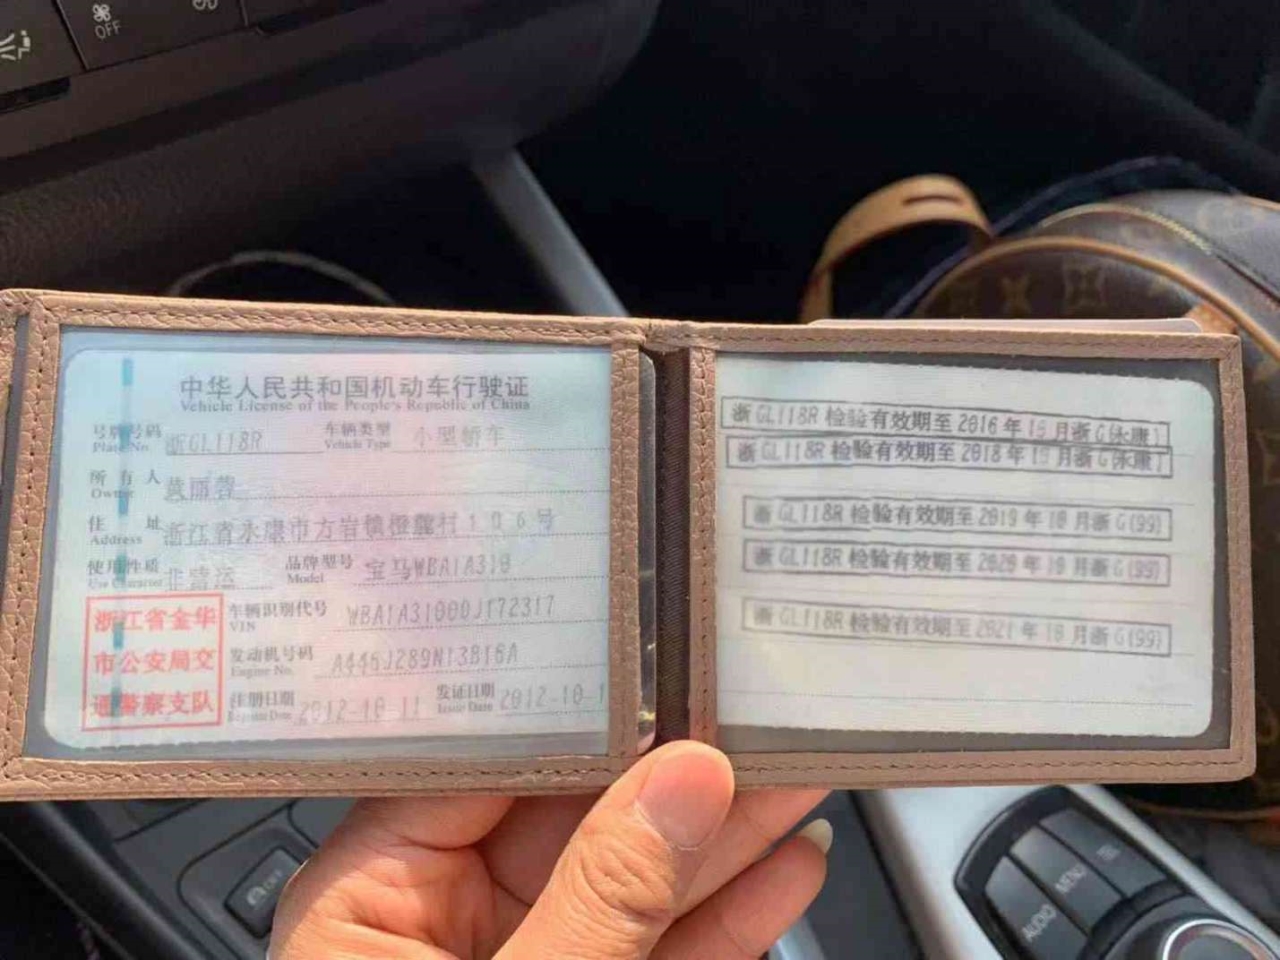 OFF
中华人民共和国机动车行驶证
Vehicle License of the People's Republic of China
号牌号码 浙GL118R 车辆类型 小型轿车
Plate No. Vehicle Type
所有人 黄丽蓉
Owner
住址 浙江省永康市方岩镇橙麓村106号
Address
使用性质 非营运 品牌型号 宝马WBA1A310
Use Character Model
浙江省金华
市公安局交
通警察支队
车辆识别代号 WBA1A31000J172317
VIN
发动机号码 A446J289N13B16A
Engine No.
注册日期 2012-10-11 发证日期 2012-10-1
Register Date Issue Date
浙GL118R 检验有效期至 2016 年 10 月浙G(永康)
浙GL118R 检验有效期至 2018 年 10 月浙G(永康)
浙GL118R 检验有效期至 2019 年 10 月浙G(99)
浙GL118R 检验有效期至 2020 年 10 月浙G(99)
浙GL118R 检验有效期至 2021 年 10 月浙G(99)
OFF
AUDIO
MENU
TEL